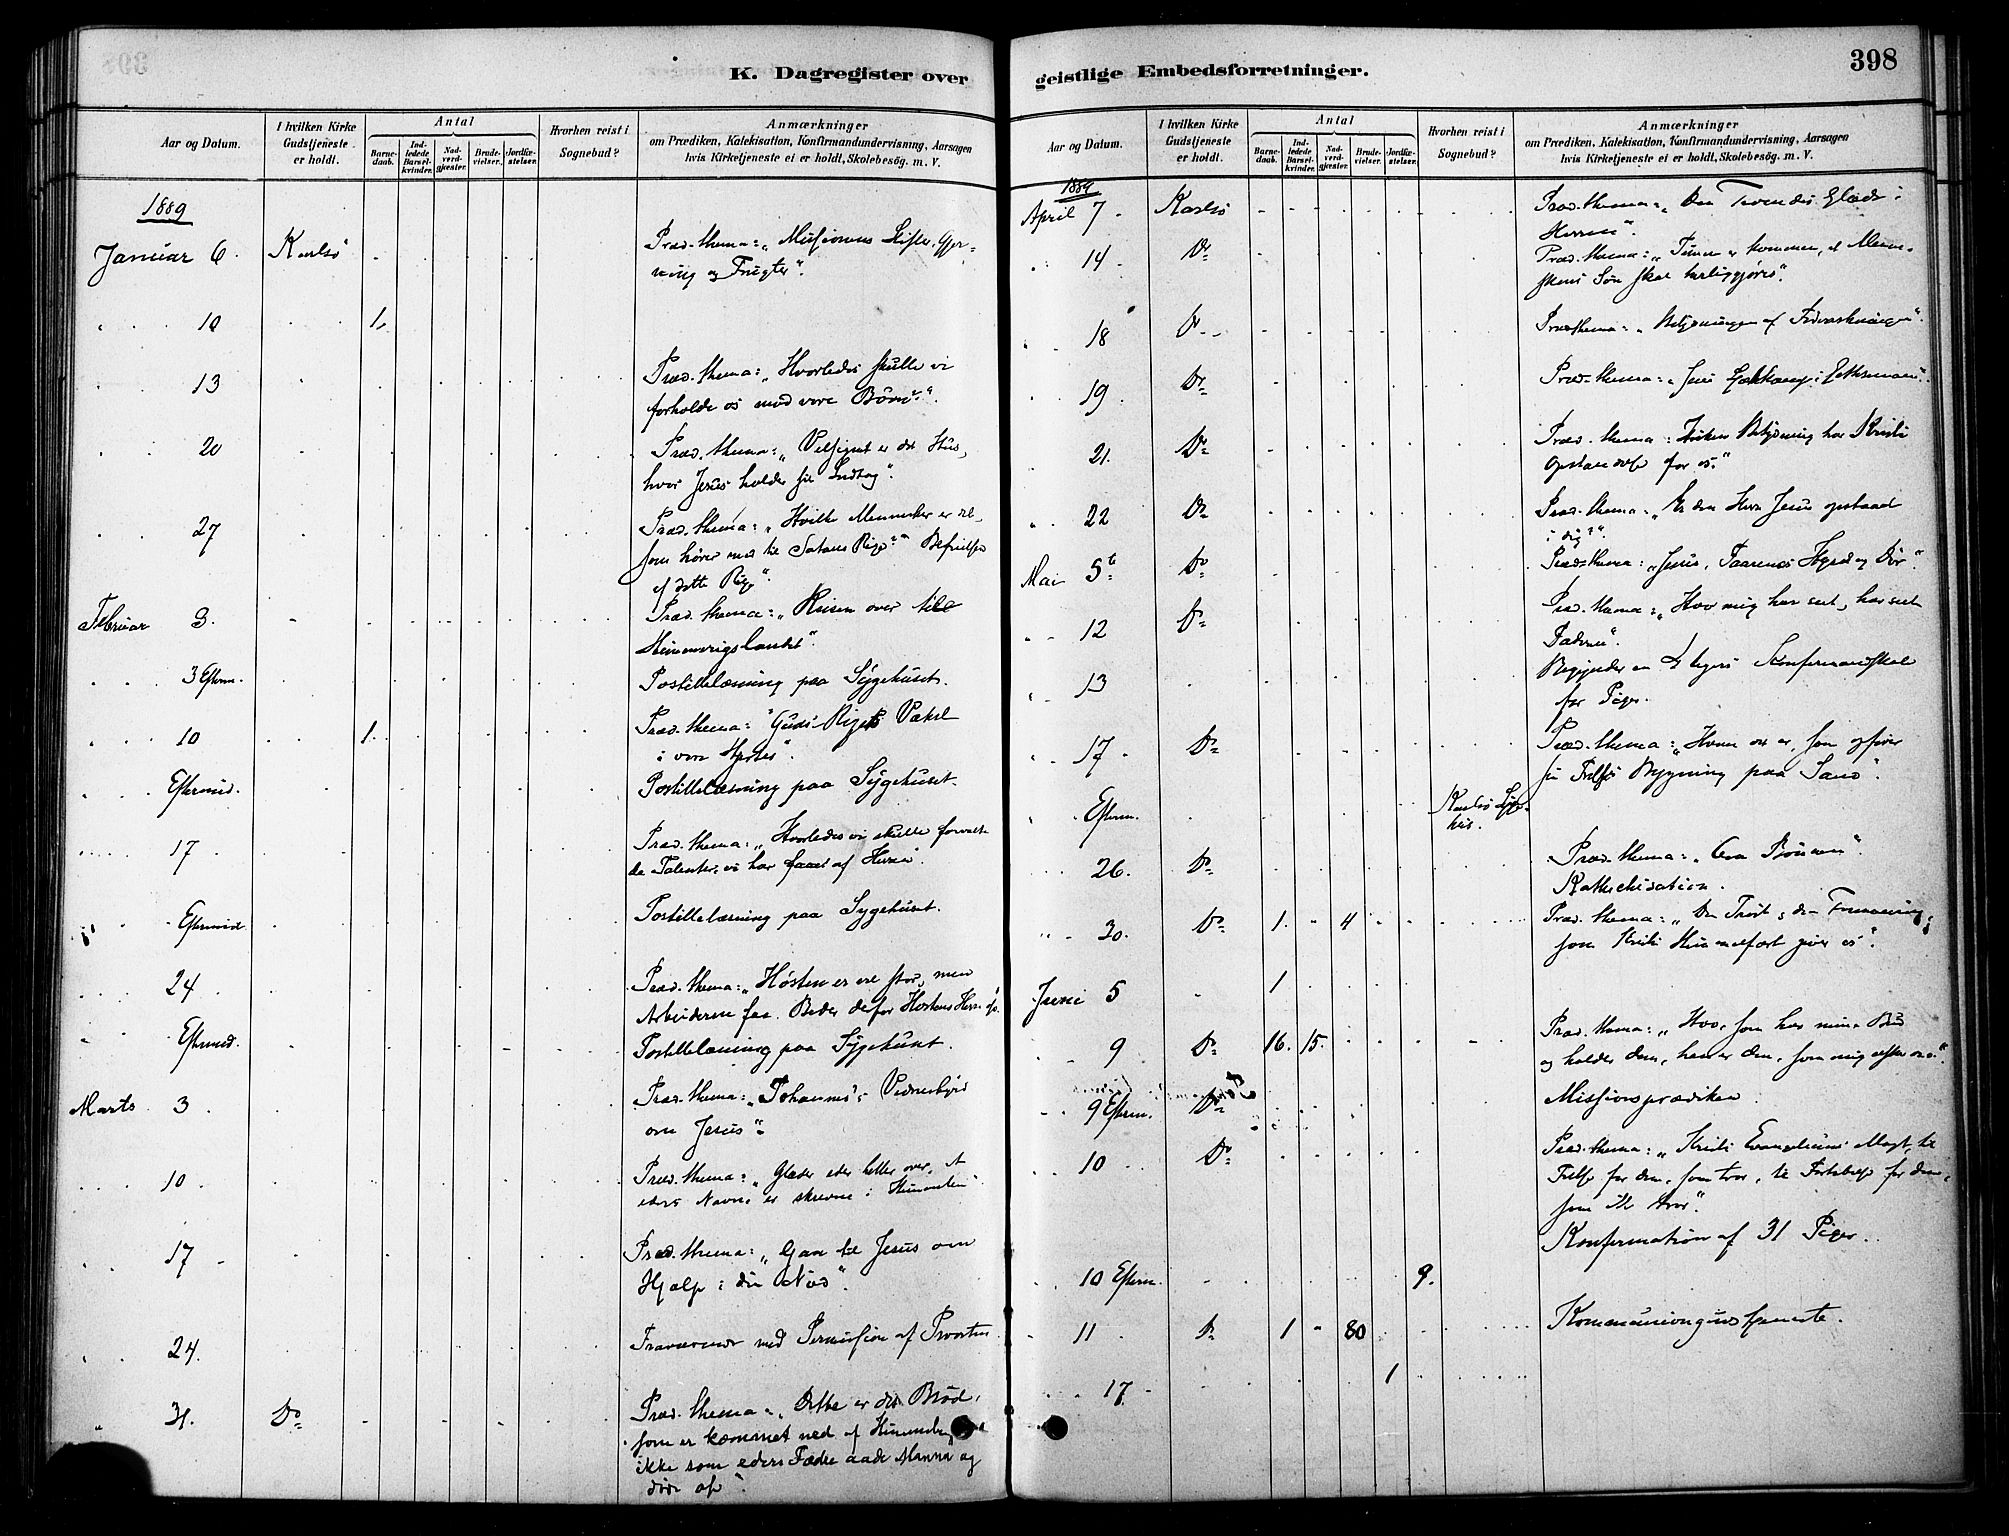 398
K. Dagregister over
geistlige Embedsforretninger.
Aar og Datum.
I hvilken Kirke
Gudstjeneste
er holdt.
Antal
Barne-
daab.
Ind-
ledede
Barsel-
kvinder.
Nad-
verd-
gjester.
Brude-
vielser.
Jordfæ-
stelser.
Hvorhen reist i
Sognebud?
Anmærkninger
om Prædiken, Katekisation, Konfirmandundervisning, Aarsagen
hvis Kirketjeneste ei er holdt, Skolebesøg. m. V.
1889
Januar 6. Karlsø Præd. thema: „Missionens Gjer-
ning og Frugter".
10 1.
13 Præd. thema: „Hvorledes skulle vi
forholde os mod vore Børn?".
20 Præd. thema: „Velsignet er det Hus,
hvor Jesus holder sit Indtog".
27 Præd. thema: „Hvilke Mennesker er det,
som hører med til Satans Rige?" Befrielse
af dette Rige".
Februar 3. Præd. thema: „Reisen over til
Himmerigslandet".
3 Efterm. Postillelæsning paa Sygehuset.
10 1. Præd. thema: „Guds Riges Væxt
i vore Hjerter".
Eftermid. Postillelæsning paa Sygehuset.
17 Præd. thema: „Hvorledes vi skulle forvalte
de Talenter, vi har faaet af Herren".
Eftermid. Postillelæsning paa Sygehuset.
24 Præd. thema: „Høsten er vel stor, men
Arbeiderne faa. Beder derfor Høstens Herre
Eftermid. Postillelæsning paa Sygehuset.
Marts 3. Præd. thema: „Johannes's Vidnesbyrd
om Jesus".
10 Præd. thema: „Glæder eder heller over, at
eders Navne er skrevne i Himmelen".
17 Præd. thema: „Gaa til Jesus om
Hjælp i din Nød".
24. Fraværende med Permission af Provsten
31. Do Præd. thema: „Dette er det Brød,
som er kommet ned af Himmelen
ikke som eders Fædre aade Manna og
døde af".
Aar og Datum.
I hvilken Kirke
Gudstjeneste
er holdt.
Antal
Barne-
daab.
Ind-
ledede
Barsel-
kvinder.
Nad-
verd-
gjester.
Brude-
vielser.
Jordfæ-
stelser.
Hvorhen reist i
Sognebud?
Anmærkninger
om Prædiken, Katekisation, Konfirmandundervisning, Aarsagen
hvis Kirketjeneste ei er holdt, Skolebesøg. m. V.
1889
April 7. Karlsø Præd. thema: „Den Troendes Glæde i
Herren".
14 Do Præd. thema: „Timen er kommen, at Menne-
skens Søn skal herliggjøres".
18 Do Præd. thema: „Betydningen af Fodvaskningen".
19 Do Præd. thema: „Jesu i Gethsemane".
21. Do Præd. thema: Hvilken Betydning har Kristi
Opstandelse for os."
22 Do Præd. thema: „Er den Herre Jesus opstaaet
i dig?"
Mai 5te Do Præd. thema: „Jesus, Faarenes Hyrde og Dør".
12 Do Præd. thema: „Hvo mig har seet, har seet
Faderen".
13 Begynder en Konfirmandskole
for Piger.
17 Do Præd. thema: „Hvem det er, som opfører
sin Frelses Bygning paa Sand".
Efterm. Karlsø Syge-
hus.
26. Do Præd. thema: „Om Bønnen".
Kathechisation.
30. Do 1. 4 Præd. thema: „Den Trøst, den Formaning,
som Kristi Himmelfart giver os".
Juni 5 1
9 Do 16. 15. Præd. thema: „Hvo, som har mine Bud
og holder dem, han er den, som mig elsker".
9 Efterm. Do Missionsprædiken
10 Do Præd. thema: „Kristi Evangeliums Magt, til
Frelse for dem, som tror, til Fortabelse for dem,
som ikke tror".
Konfirmation af 31 Piger.
10 Efterm. 9.
11 Do 1 80 Kommuniongudstjeneste.
17. 1